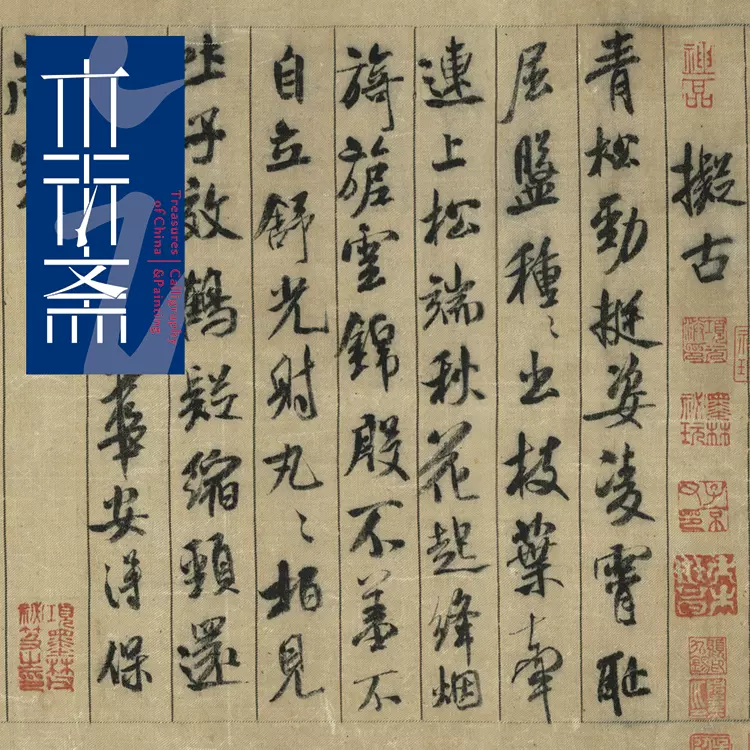 神品
擬古
青松勁挺姿凌霄恥
屈盤種〻出枝葉牽
連上松端秋花起絳烟
旖旎雲錦殷不羞不
自立舒光射丸〻柏見
吐子效鶴疑縮頸還
華安得保
歲寒
Treasures | Calligraphy
of China | & Painting
墨林祕玩
項墨林祕笈之印